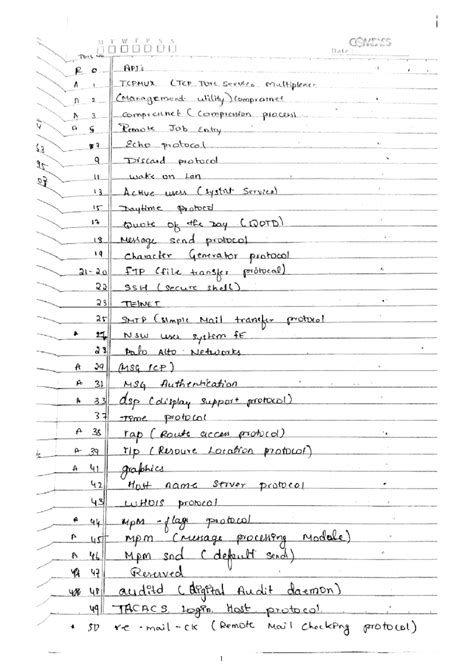 M T W T F S S
Date
Port No
R 0 API's
A 1 TCPMUX (TCP Port Service Multiplexer
A 2 (Management utility) compressnet
A 3 compressnet (Compression process)
A 5 Remote Job Entry
7 Echo protocol
9 Discard protocol
11 wake on Lan
13 Active users (systat service)
15 Daytime protocol
17 Quote of the Day (QOTD)
18 Message send protocol
19 Character Generator protocol
21-20 FTP (file transfer protocol)
22 SSH (Secure shell)
23 TELNET
25 SMTP (Simple Mail transfer protocol
* 27 NSW user system FE
28 Palo Alto Networks
A 29 (MSG ICP)
A 31 MSG Authentication
A 33 dsp (display support protocol)
37 Time protocol
A 38 rap (Route access protocol)
A 39 rlp (Resource Location protocol)
A 41 graphics
42 Host name Server protocol
43 WHOIS protocol
* 44 MPM - flags protocol
A 45 mpm (Message processing Module)
A 46 Mpm snd (default send)
47 Reserved
48 auditd (digital Audit daemon)
49 TACACS Login Host protocol
* 50 re-mail-ck (Remote Mail Checking protocol)
1